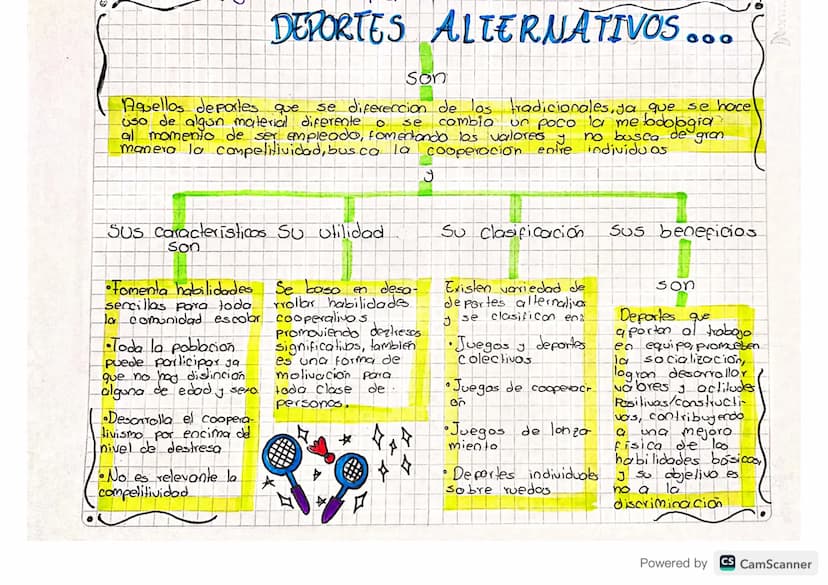 DEPORTES ALTERNATIVOS...
son
Aquellos deportes que se diferercian de los tradicionales, ya que se hace
uso de algun material diferente o se cambia un poco la metodología
al momento de ser empleado, fomentando los valores y no busca de gran
manera la competitividad, busca la cooperación entre individuos
y
sus características
son
•Fomenta habilidades
sencillas para toda
la comunidad escolar
•Toda la población
puede participar ya
que no hay distinción
alguna de edad y sexo
•Desarrolla el coopera-
tivismo por encima del
nivel de destresa
•No es relevante la
competitividad
Su utilidad
Se basa en desa-
rrollar habilidades
cooperativas
promoviendo deztresas
significativas, también
es una forma de
motivación para
toda clase de
personas.
Su clasificación
Existen variedad de
deportes alternativos
y se clasifican en:
•Juegos y deportes
colectivos
•Juegos de cooperaci-
ón
•Juegos de lanza-
miento
•Deportes individuales
sobre ruedas
Sus beneficios
son
Deportes que
aportan al trabajo
en equipo, promueben
la socialización,
logran desarrollar
valores y actitudes
Positivas/constructi-
vas, contribuyendo
a una mejora
física de las
habilidades básicas
y su objetivo es
no a la
discriminación
Powered by CS CamScanner